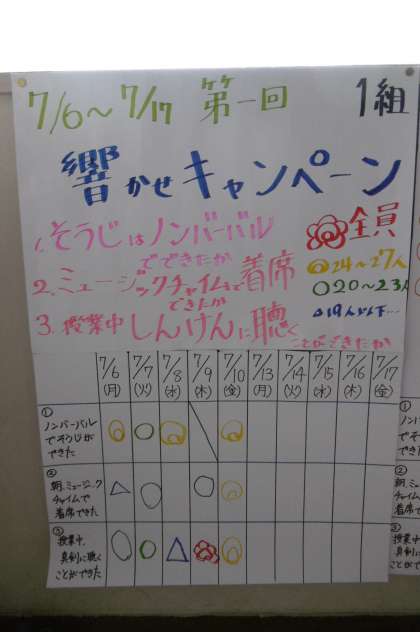 7/6～7/17 第一回 1組
響かせキャンペーン
1.そうじはノンバーバル
でできたか
2.ミュージックチャイムで着席
できたか
3.授業中しんけんに聴く
ことができたか
全員
24～27人
20～23人
19人以下…
7/6(月) 7/7(火) 7/8(水) 7/9(木) 7/10(金) 7/13(月) 7/14(火) 7/15(水) 7/16(木) 7/17(金)
①
ノンバーバル
でそうじが
できた
②
朝、ミュージック
チャイムで
着席できた
③
授業中、
真剣に聴く
ことができた
①
ノン
でそ
②
朝、ミ
チャイ
着席
③
授
真
こと